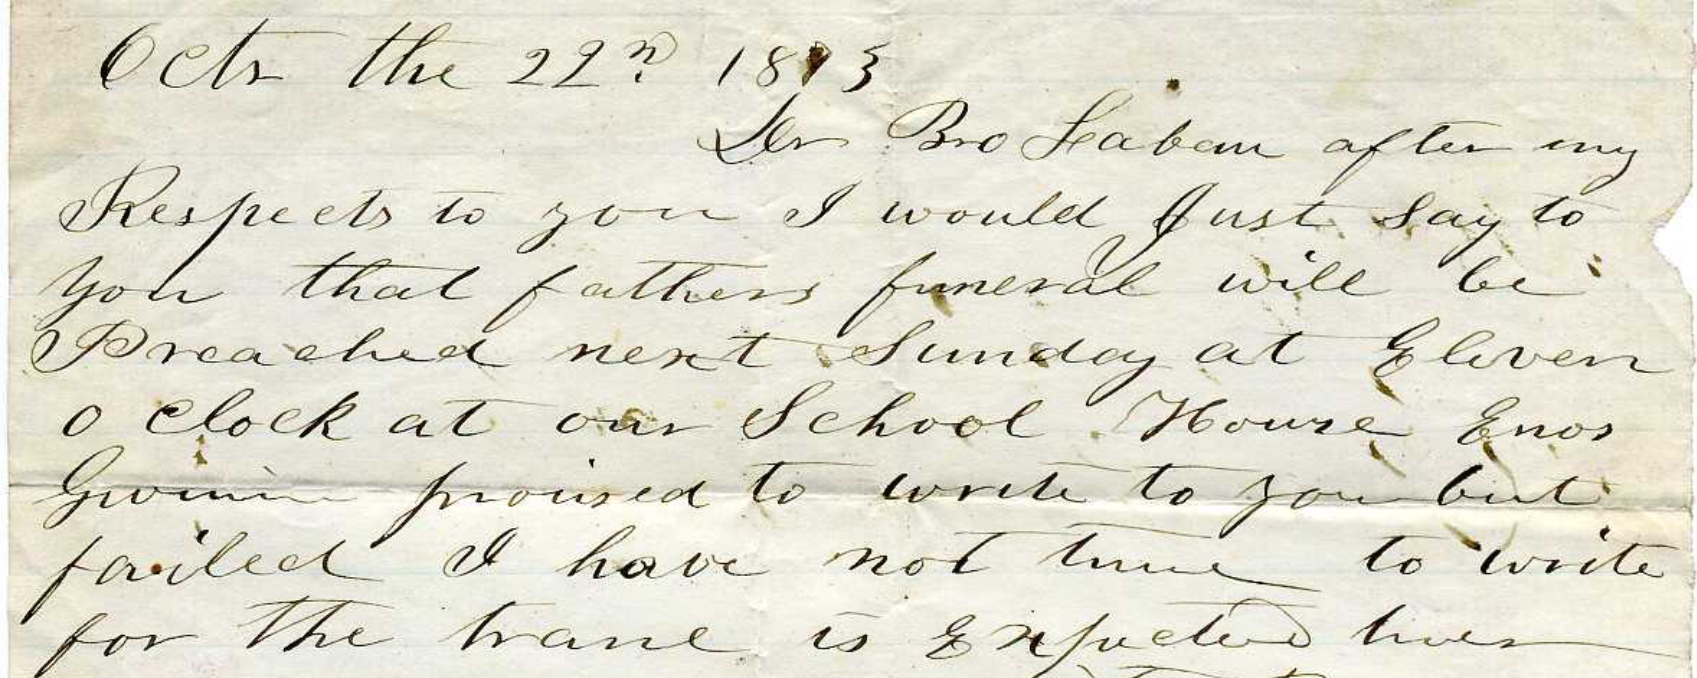 Octr the 22n 1873
Dr Bro Laban after my
Respects to you I would Just Say to
you that fathers funeral will be
Preached next Sunday at Eleven
o clock at our School House Enos
Gwinn promised to write to you but
failed I have not time to write
for the trane is Expected